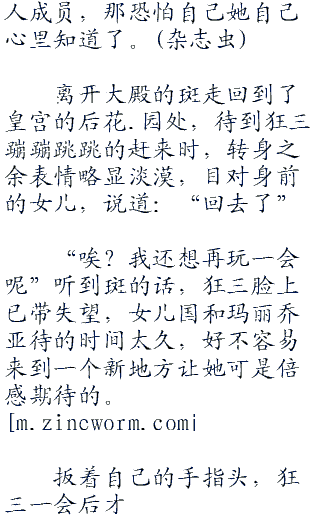 人成员，那恐怕自己她自己
心里知道了。(杂志虫)
离开大殿的斑走回到了
皇宫的后花.园处，待到狂三
蹦蹦跳跳的赶来时，转身之
余表情略显淡漠，目对身前
的女儿，说道：“回去了”
“唉？我还想再玩一会
呢”听到斑的话，狂三脸上
已带失望，女儿国和玛丽乔
亚待的时间太久，好不容易
来到一个新地方让她可是倍
感期待的。
[m.zincworm.com|
扳着自己的手指头，狂
三一会后才